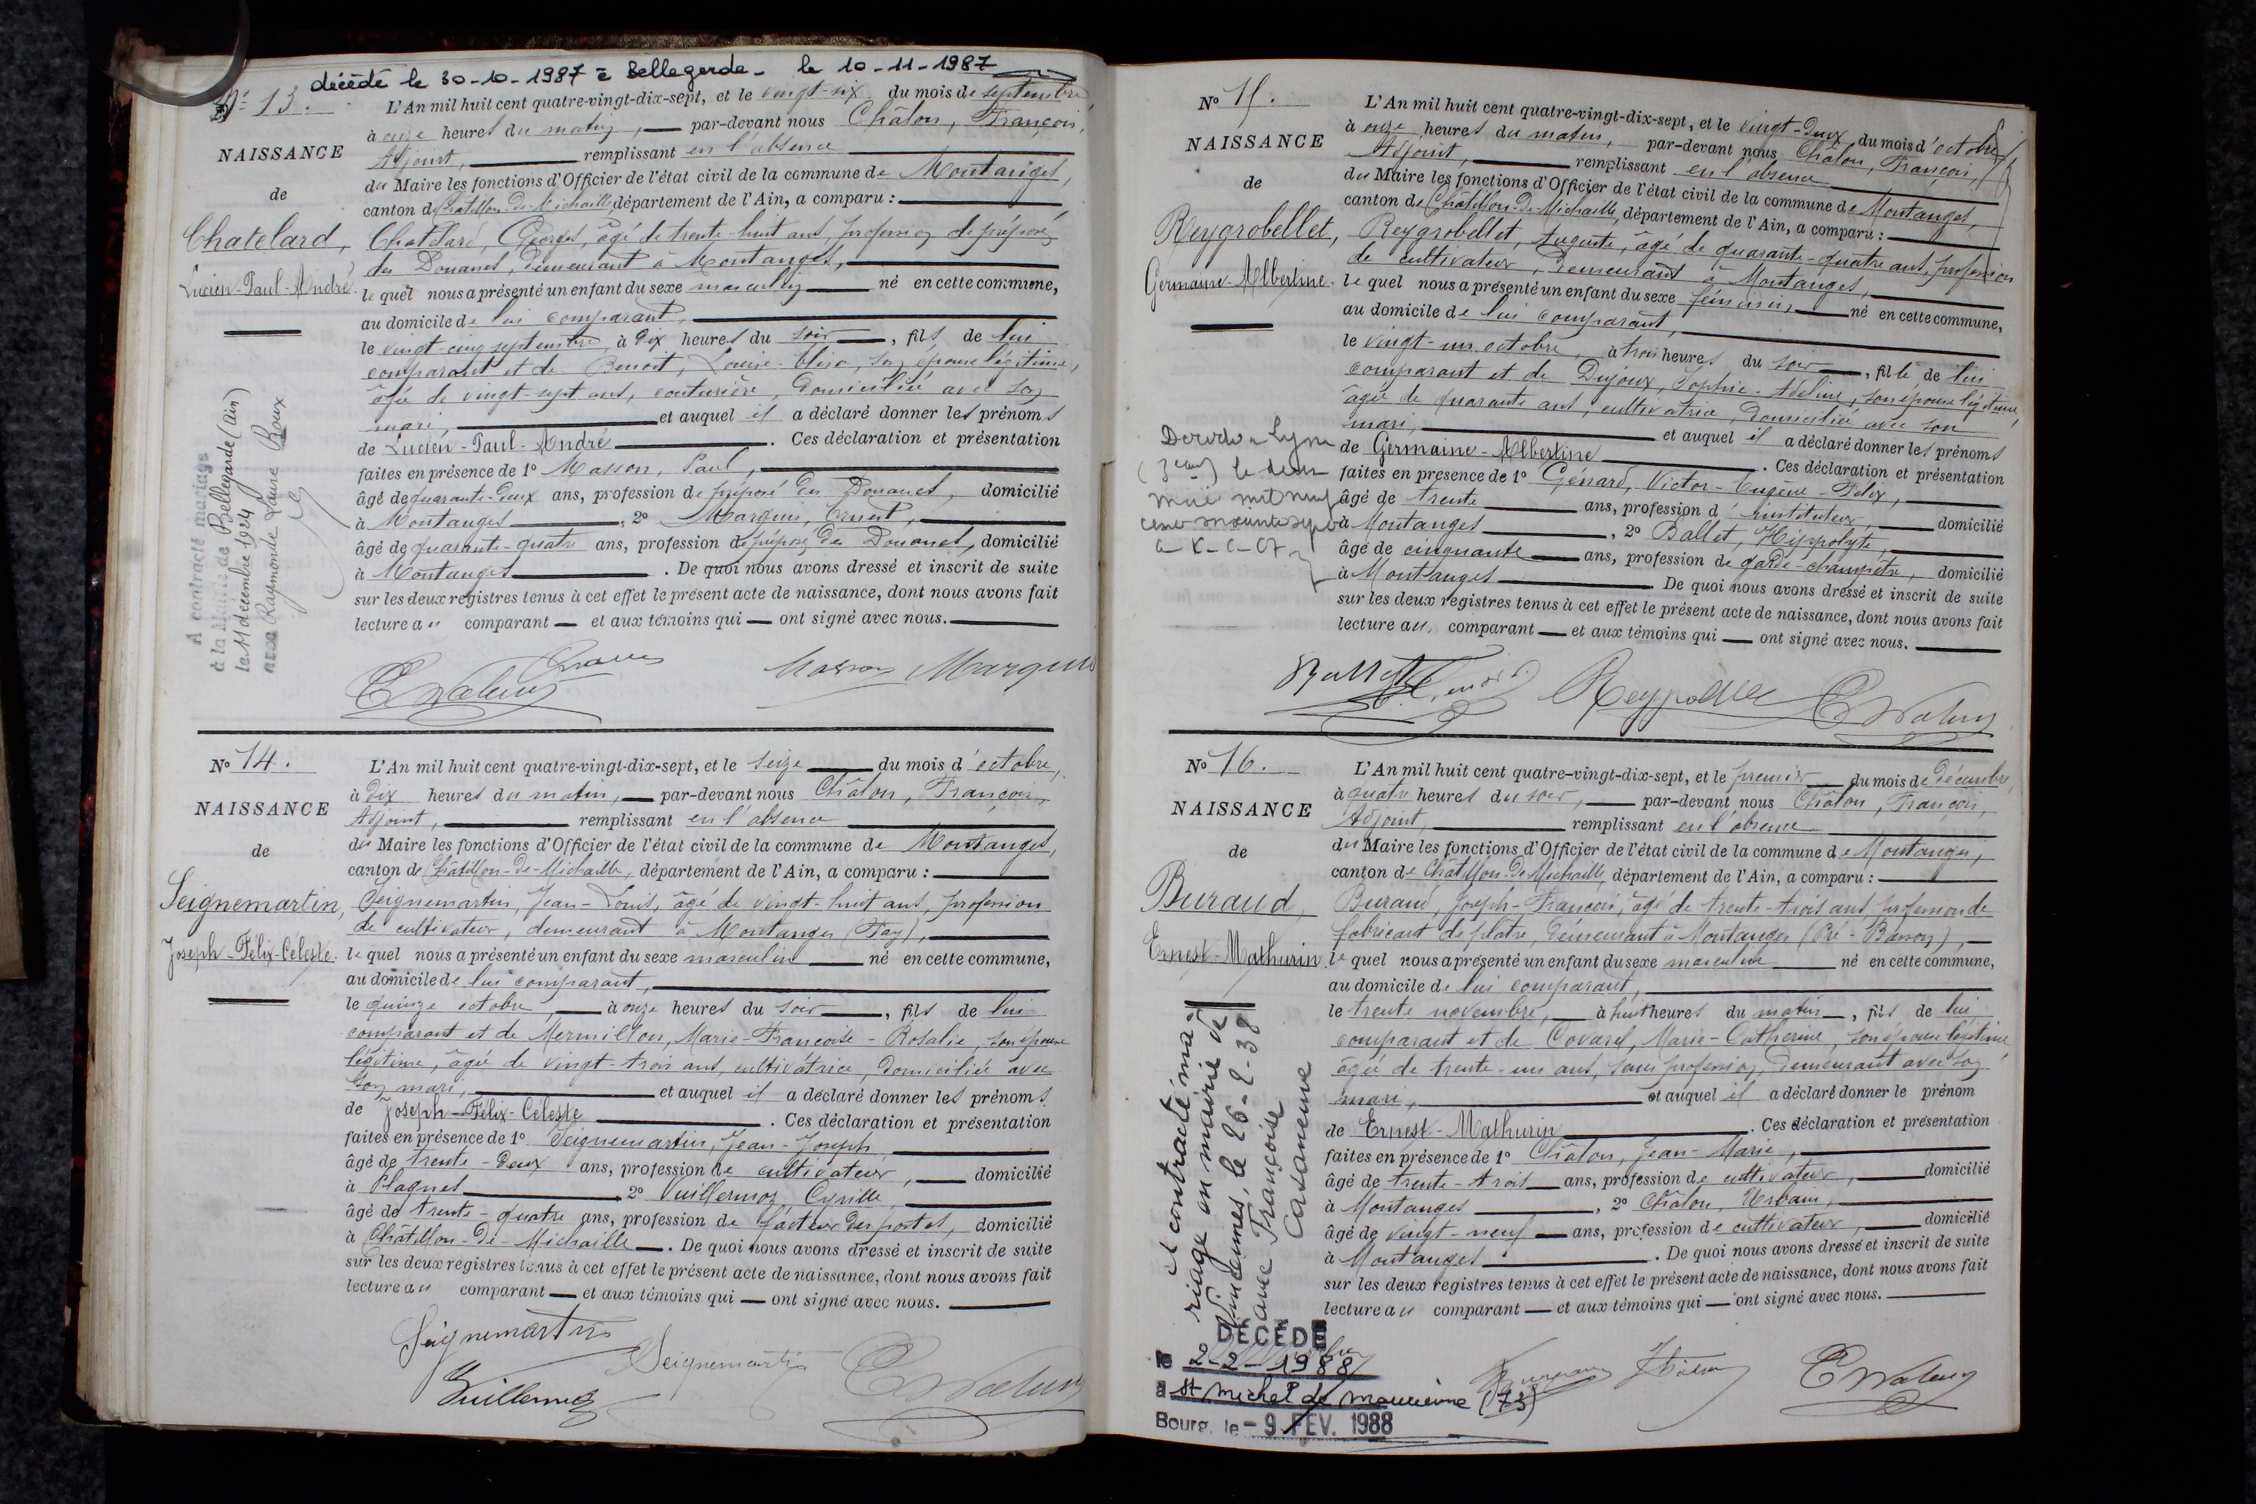 décédé le 30-10-1987 à Bellegarde - le 10-11-1987
N° 13.
NAISSANCE
de
Chatelard,
Lucien-Paul-André.
A contracté mariage
à la Mairie de Bellegarde (Ain)
le 11 décembre 1924
avec Raymonde Laure Roux
L'An mil huit cent quatre-vingt-dix-sept, et le vingt-six du mois de septembre,
à onze heures du matin, par-devant nous Châlon, François,
Adjoint, remplissant en l'absence
du Maire les fonctions d'Officier de l'état civil de la commune de Montanges,
canton de Châtillon-de-Michaille, département de l'Ain, a comparu :
Chatelard, Georges, âgé de trente-huit ans, profession de préposé
des Douanes, demeurant à Montanges,
le quel nous a présenté un enfant du sexe masculin né en cette commune,
au domicile de lui comparant,
le vingt-cinq septembre à dix heures du soir, fils de lui
comparant et de Benoit, Louise-Elisa, son épouse légitime,
âgée de vingt-sept ans, couturière, domiciliée avec son
mari, et auquel il a déclaré donner les prénoms
de Lucien-Paul-André. Ces déclaration et présentation
faites en présence de 1° Masson, Paul,
âgé de quarante-deux ans, profession de préposé des Douanes, domicilié
à Montanges, 2° Marquis, Ernest,
âgé de quarante-quatre ans, profession de préposé des Douanes, domicilié
à Montanges. De quoi nous avons dressé et inscrit de suite
sur les deux registres tenus à cet effet le présent acte de naissance, dont nous avons fait
lecture au comparant et aux témoins qui ont signé avec nous.
Masson Marquis
N° 14.
NAISSANCE
de
Seignemartin,
Joseph-Félix-Céleste.
L'An mil huit cent quatre-vingt-dix-sept, et le seize du mois d'octobre,
à dix heures du matin, par-devant nous Châlon, François,
Adjoint, remplissant en l'absence
du Maire les fonctions d'Officier de l'état civil de la commune de Montanges,
canton de Châtillon-de-Michaille, département de l'Ain, a comparu :
Seignemartin, Jean-Louis, âgé de vingt-huit ans, profession
de cultivateur, demeurant à Montanges (Fay),
le quel nous a présenté un enfant du sexe masculin né en cette commune,
au domicile de lui comparant,
le quinze octobre, à onze heures du soir, fils de lui
comparant et de Mermillon, Marie-Françoise-Rosalie, son épouse
légitime, âgée de vingt-trois ans, cultivatrice, domiciliée avec
son mari, et auquel il a déclaré donner les prénoms
de Joseph-Félix-Céleste. Ces déclaration et présentation
faites en présence de 1° Seignemartin, Jean-Joseph,
âgé de trente-deux ans, profession de cultivateur, domicilié
à Plagnes, 2° Vuillermoz, Cyrille,
âgé de trente-quatre ans, profession de facteur des postes, domicilié
à Châtillon-de-Michaille. De quoi nous avons dressé et inscrit de suite
sur les deux registres tenus à cet effet le présent acte de naissance, dont nous avons fait
lecture au comparant et aux témoins qui ont signé avec nous.
Seignemartin
Seignemartin
Vuillermoz
N° 15.
NAISSANCE
de
Reygrobellet,
Germaine-Albertine.
L'An mil huit cent quatre-vingt-dix-sept, et le vingt-deux du mois d'octobre,
à onze heures du matin, par-devant nous Châlon, François,
Adjoint, remplissant en l'absence
du Maire les fonctions d'Officier de l'état civil de la commune de Montanges,
canton de Châtillon-de-Michaille, département de l'Ain, a comparu :
Reygrobellet, Auguste, âgé de quarante-quatre ans, profession
de cultivateur, demeurant à Montanges,
le quel nous a présenté un enfant du sexe féminin, né en cette commune,
au domicile de lui comparant,
le vingt-un octobre, à trois heures du soir, fille de lui
comparant et de Dujoux, Sophie-Adeline, son épouse légitime,
âgée de quarante ans, cultivatrice, domiciliée avec son
mari, et auquel il a déclaré donner les prénoms
de Germaine-Albertine. Ces déclaration et présentation
faites en présence de 1° Génard, Victor-Eugène-Félix,
âgé de trente ans, profession d'instituteur, domicilié
à Montanges, 2° Ballet, Hippolyte,
âgé de cinquante ans, profession de garde-champêtre, domicilié
à Montanges De quoi nous avons dressé et inscrit de suite
sur les deux registres tenus à cet effet le présent acte de naissance, dont nous avons fait
lecture au comparant et aux témoins qui ont signé avec nous.
N° 16.
NAISSANCE
de
Buraud,
Ernest-Mathurin.
a contracté ma-
riage en mairie de
Vincennes, le 26-2-38
avec Françoise
Casanenne
DÉCÉDÉ
le 2-2-1988
à St Michel de Maurienne (73)
Bourg, le -9 FEV. 1988
L'An mil huit cent quatre-vingt-dix-sept, et le premier du mois de décembre,
à quatre heures du soir, par-devant nous Châlon, François,
Adjoint, remplissant en l'absence
du Maire les fonctions d'Officier de l'état civil de la commune de Montanges,
canton de Châtillon-de-Michaille, département de l'Ain, a comparu :
Buraud, Joseph-François, âgé de trente-trois ans, profession de
fabricant de plâtre, demeurant à Montanges (Pré-Basson),
le quel nous a présenté un enfant du sexe masculin né en cette commune,
au domicile de lui comparant,
le trente novembre, à huit heures du matin, fils de lui
comparant et de Covarel, Marie-Catherine, son épouse légitime,
âgée de trente-un ans, sans profession, demeurant avec son
mari, et auquel il a déclaré donner le prénom
de Ernest-Mathurin. Ces déclaration et présentation
faites en présence de 1° Châlon, Jean-Marie,
âgé de trente-trois ans, profession de cultivateur, domicilié
à Montanges, 2° Châlon, Urbain,
âgé de vingt-neuf ans, profession de cultivateur, domicilié
à Montanges. De quoi nous avons dressé et inscrit de suite
sur les deux registres tenus à cet effet le présent acte de naissance, dont nous avons fait
lecture au comparant et aux témoins qui ont signé avec nous.